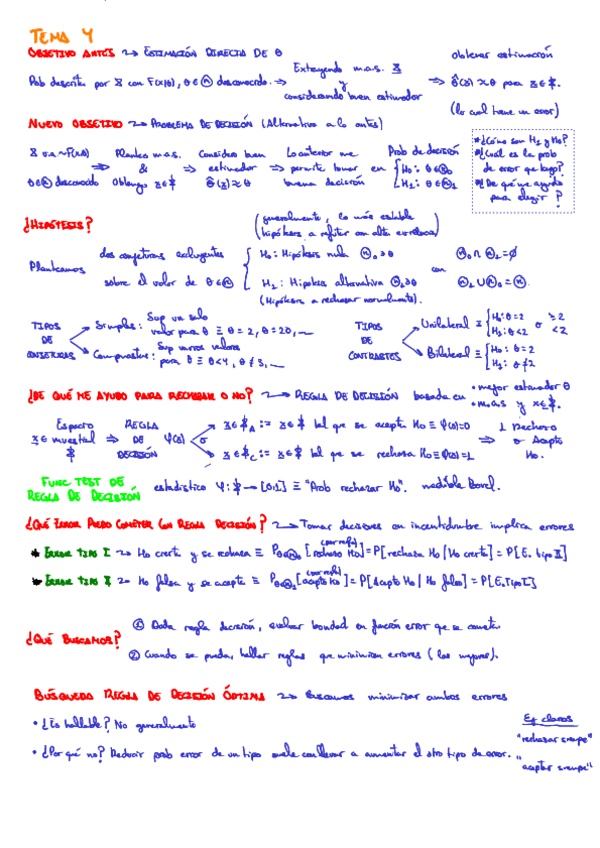 TEMA 4
OBJETIVO ANTES ⤳ ESTIMACIÓN DIRECTA DE θ
Extrayendo m.a.s. X
obtener estimación
Pob descrita por X con F(x|θ), θ∈Θ desconocido ⇒ y ⇒ θ̂(x)≈θ para x∈$.
considerando buen estimador
(lo cual tiene un error)
NUEVO OBJETIVO ⤳ PROBLEMA DE DECISIÓN (Alternativa a lo antes)
X v.a ~ F(x|θ) Planteo m.a.s. Considero buen Lo anterior me Prob de decisión
⇒ & ⇒ estimador ⇒ permite tomar en { H₀: θ∈Θ₀
θ∈Θ desconocido Obtengo x∈$ θ̂(x)≈θ buena decisión H₁: θ∈Θ₁
*¿Cómo son H₁ y H₀?
¿Cuál es la prob
de error que hago?
¿De qué me ayudo
para elegir?
¿HIPÓTESIS?
(generalmente, lo más estable
(hipótesis a refutar con alta certeza)
dos conjeturas excluyentes { H₀: Hipótesis nula Θ₀∋θ Θ₀∩Θ₁=∅
Planteamos con
sobre el valor de θ∈Θ H₁: Hipótesis alternativa Θ₁∋θ Θ₁∪Θ₀=Θ.
(Hipótesis a rechazar normalmente).
TIPOS DE CONJETURAS
Simples: Sup un solo valor para θ ≡ θ=2, θ=20, ...
Compuestas: Sup varios valores para θ ≡ θ<4, θ≠3, ...
TIPOS DE CONTRASTES
Unilateral ≡ { H₀: θ=2 o ≥2
H₁: θ<2 <2
Bilateral ≡ { H₀: θ=2
H₁: θ≠2
¿DE QUÉ ME AYUDO PARA RECHAZAR O NO? ⤳ REGLA DE DECISIÓN basada en • mejor estimador θ
• m.a.s y x∈$.
Espacio REGLA x∈$_A := x∈$ tal que se acepta H₀ ≡ φ(x)=0 1 Rechazo
x∈ muestral ⇒ DE φ(x) o ⇒ o Acepto
$ DECISIÓN x∈$_C := x∈$ tal que se rechaza H₀ ≡ φ(x)=1 H₀.
FUNC TEST DE
REGLA DE DECISIÓN estadístico φ: $→[0,1] ≡ "Prob rechazar H₀". medible Borel.
¿QUÉ ERROR PUEDO COMETER CON REGLA DECISIÓN? ⤳ Tomar decisiones en incertidumbre implica errores
* ERROR TIPO I ⤳ H₀ cierta y se rechaza ≡ P_θ∈Θ₀[rechazo H₀] = P[rechaza H₀ | H₀ cierta] = P[E. tipo I]
* ERROR TIPO II ⤳ H₀ falsa y se acepta ≡ P_θ∈Θ₁[acepto H₀] = P[Acepto H₀ | H₀ falsa] = P[E.Tipo II]
¿QUÉ BUSCAMOS?
① Dada regla decisión, evaluar bondad en función error que se cometa.
② Cuando se pueda, hallar reglas que minimicen errores (las mejores).
BÚSQUEDA REGLA DE DECISIÓN ÓPTIMA ⤳ Buscamos minimizar ambos errores
• ¿Es hallable? No generalmente
Ej claros
"rechazar siempre"
• ¿Por qué no? Reducir prob error de un tipo suele conllevar a aumentar el otro tipo de error.
"aceptar siempre"